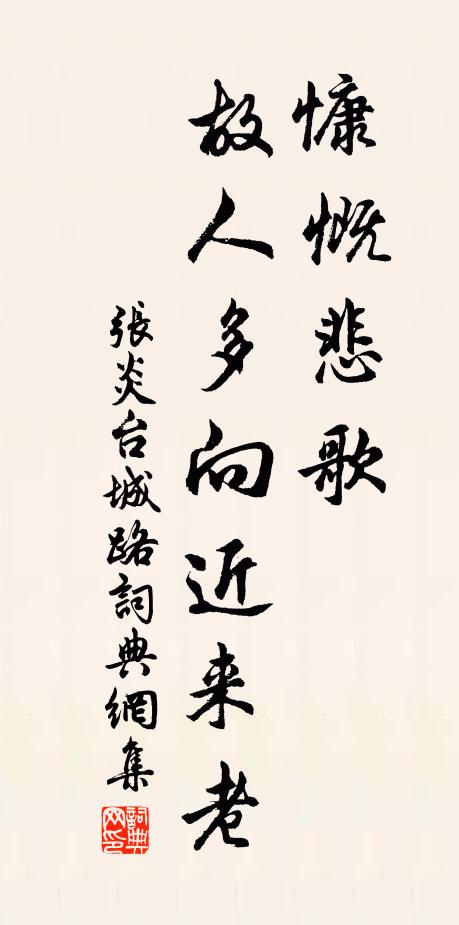 慷慨悲歌
故人多向近来老
張炎台城路詞典網集
詞典網印